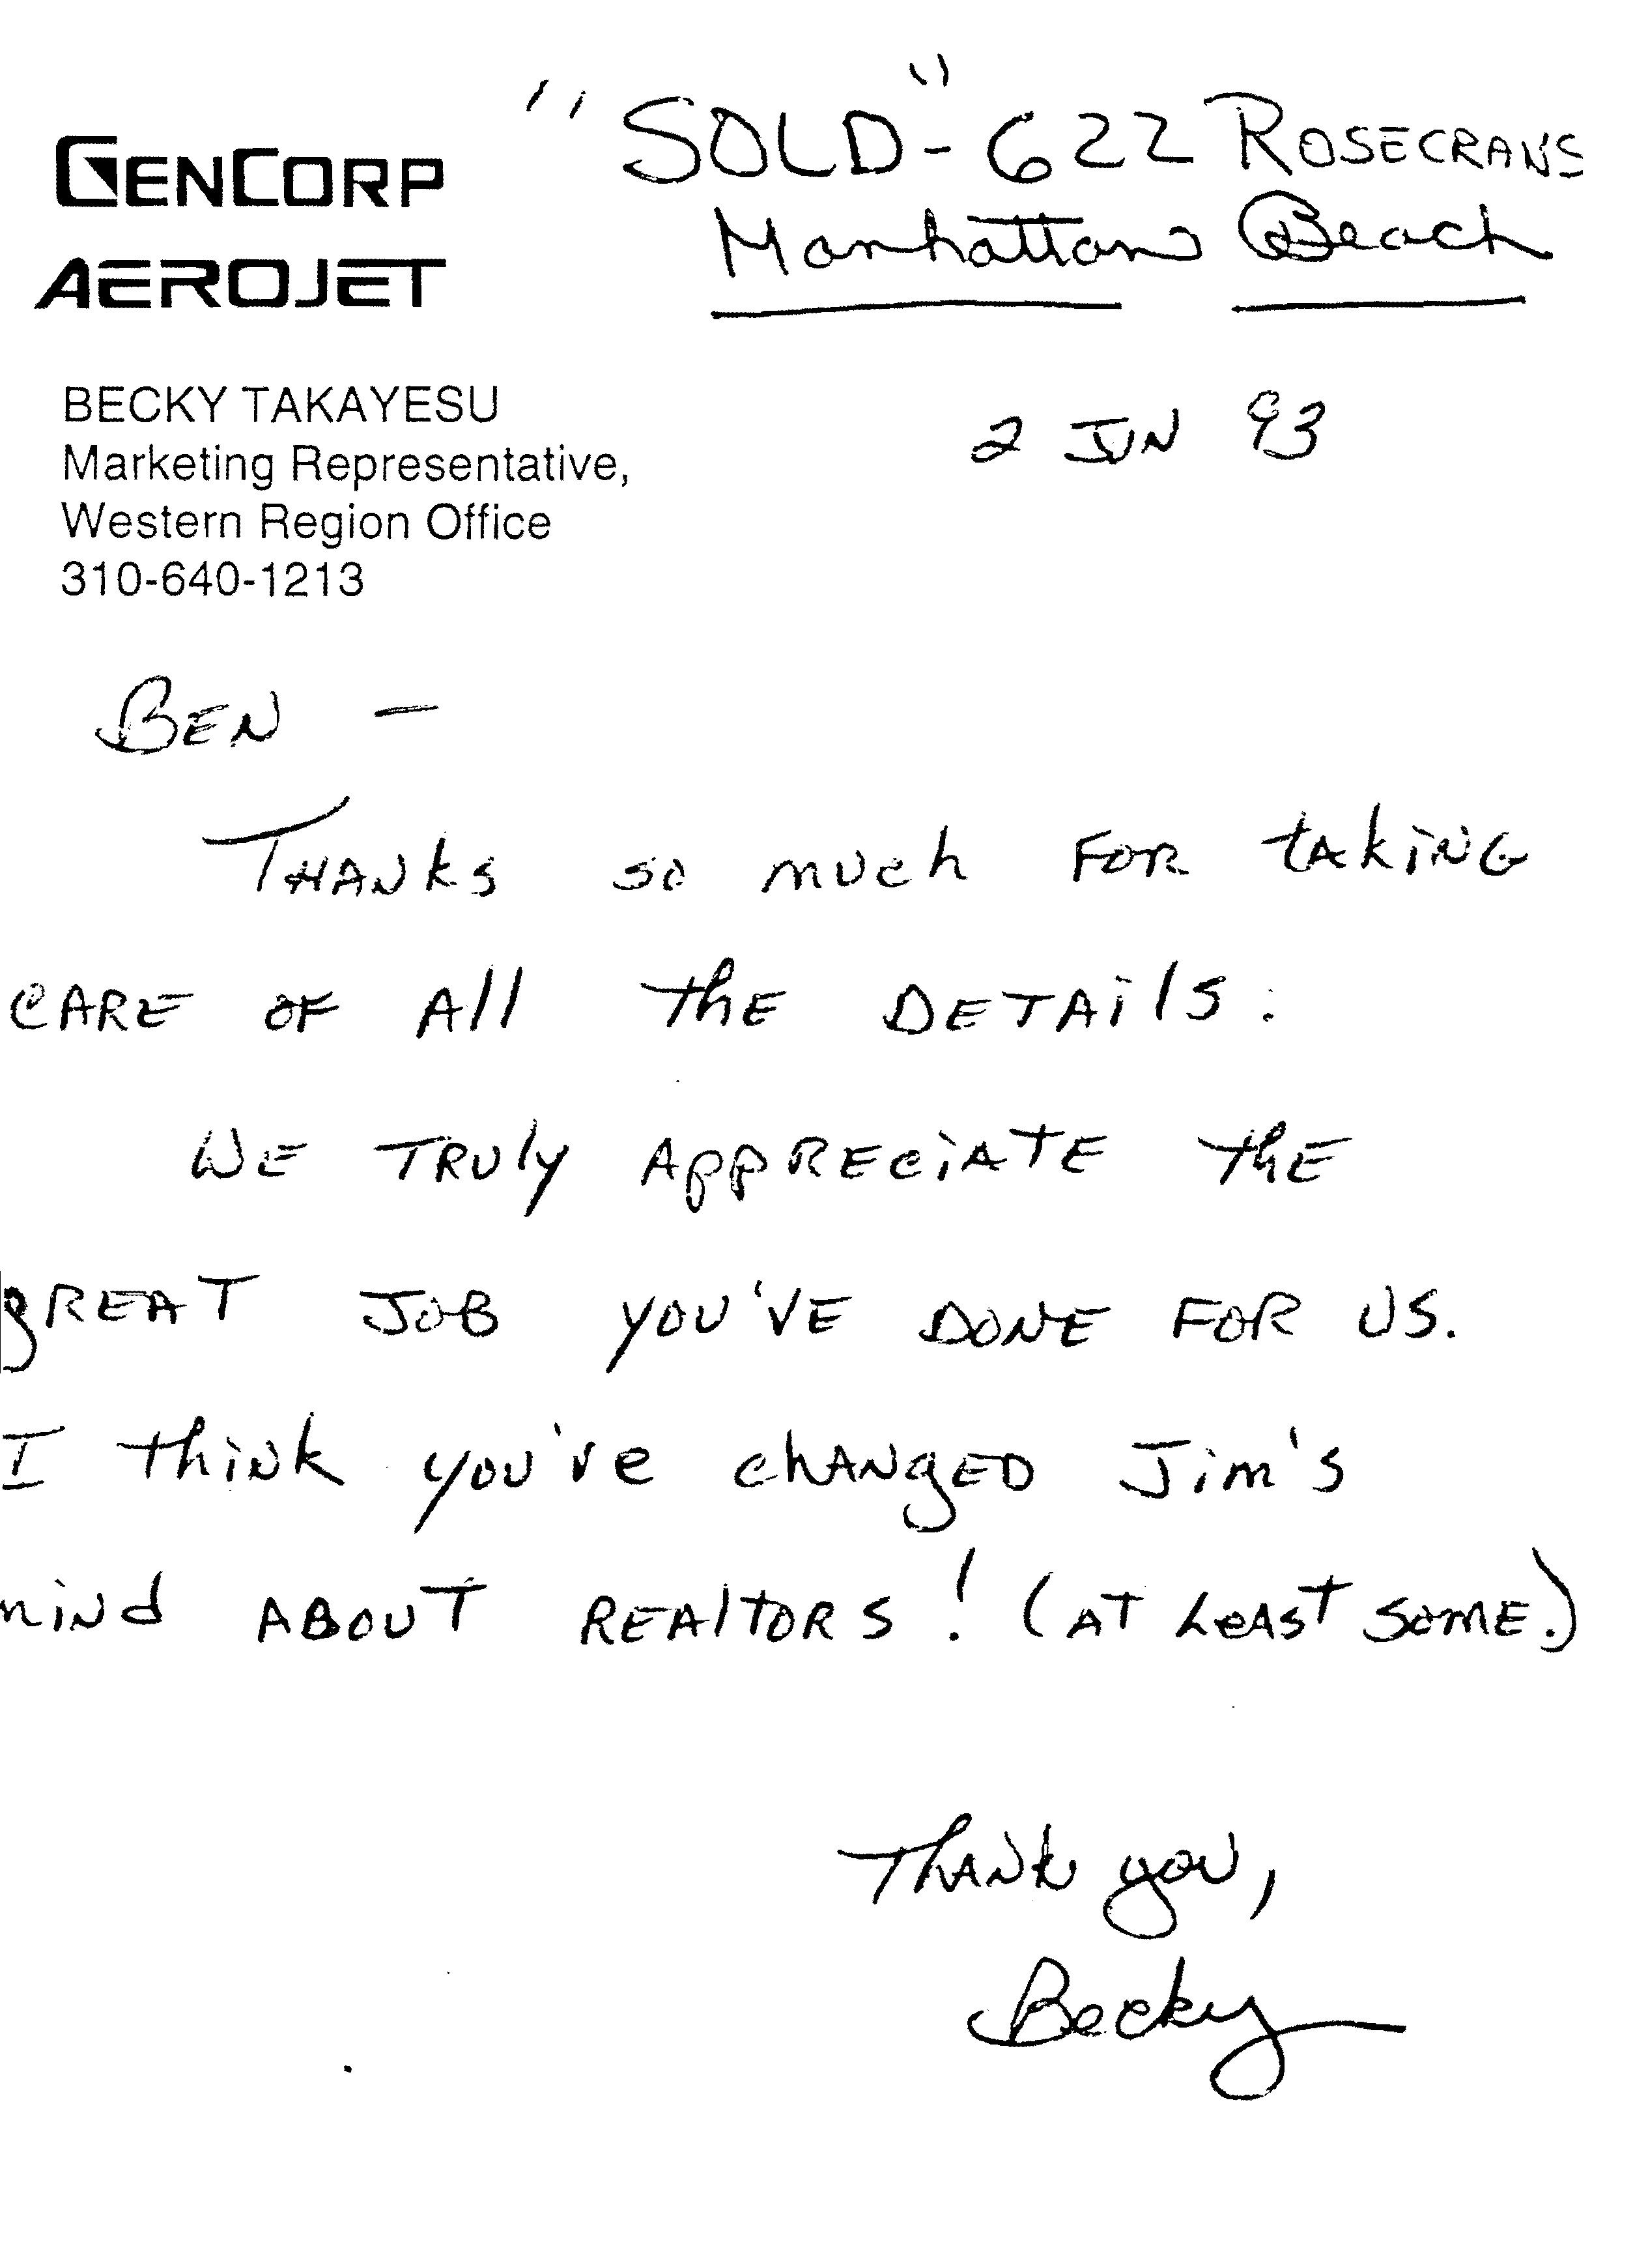 "SOLD" - 622 ROSECRANS
Manhattan Beach
GENCORP
AEROJET
BECKY TAKAYESU
Marketing Representative,
Western Region Office
310-640-1213
2 JUN 93
BEN -
THANKS so much FOR taking
CARE OF All the DETAilS.
WE TRUly APPRECiATE the
gREAT JOB YOU'VE DONE FOR US.
I think you've chANgED Jim's
mind ABOUT REAlTORS! (AT LeAST SOME.)
ThANk you,
Becky